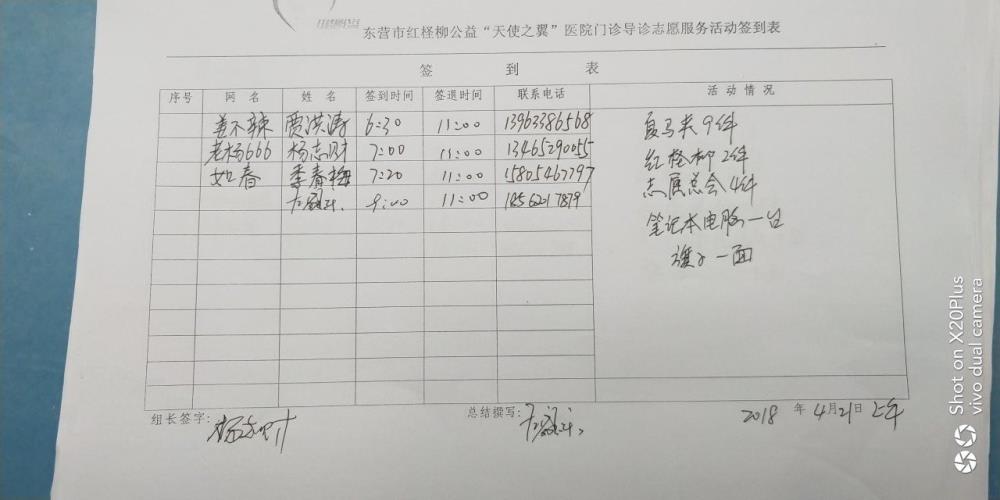 东营市红柽柳公益“天使之翼”医院门诊导诊志愿服务活动签到表
签 到 表
序号 网 名 姓 名 签到时间 签退时间 联系电话 活 动 情 况
姜不辣 贾洪涛 6:30 11:00 13963386568 复马夹9件
老杨666 杨志财 7:00 11:00 13465290055 红柽柳 2件
如春 季春梅 7:20 11:00 15805467797 志愿总会4件
9:00 11:00 18562017879 笔记本电脑一台
旗子一面
组长签字: 总结撰写: 2018 年 4月21日 上午
Shot on X20Plus
vivo dual camera